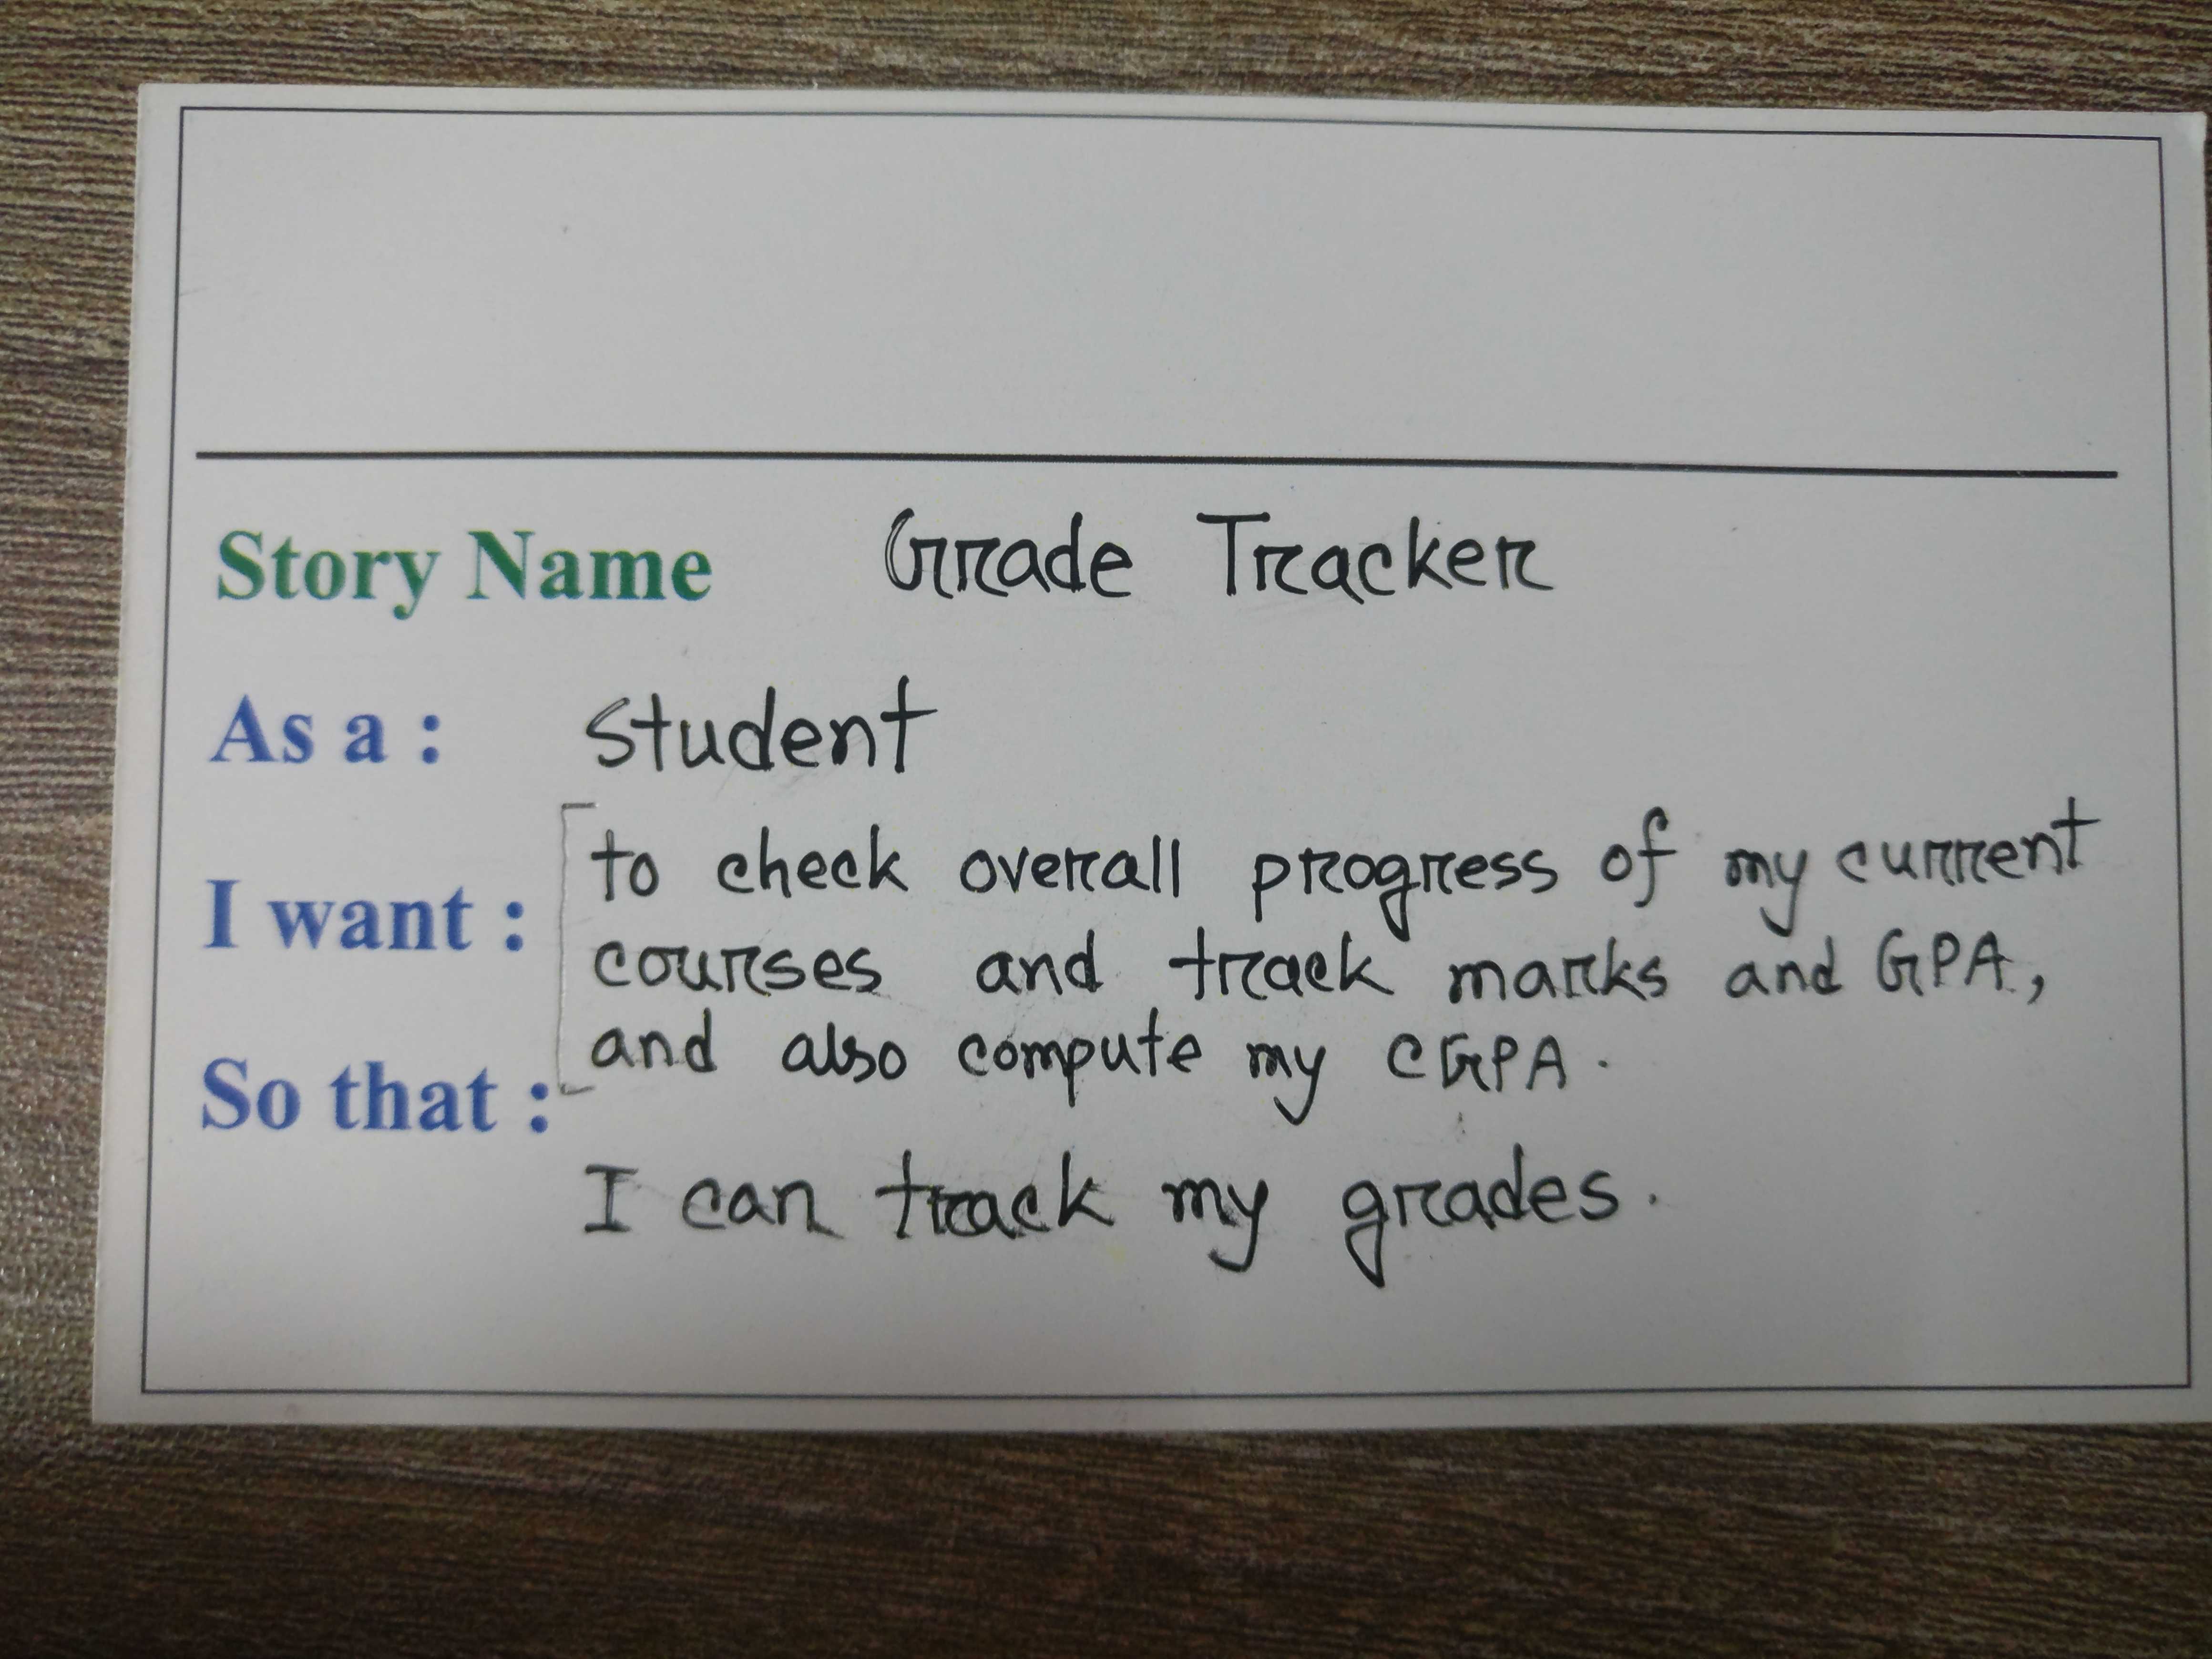 Story Name Grade Tracker
As a : Student
I want : to check overall progress of my current
courses and track marks and GPA,
and also compute my CGPA.
So that :
I can track my grades.